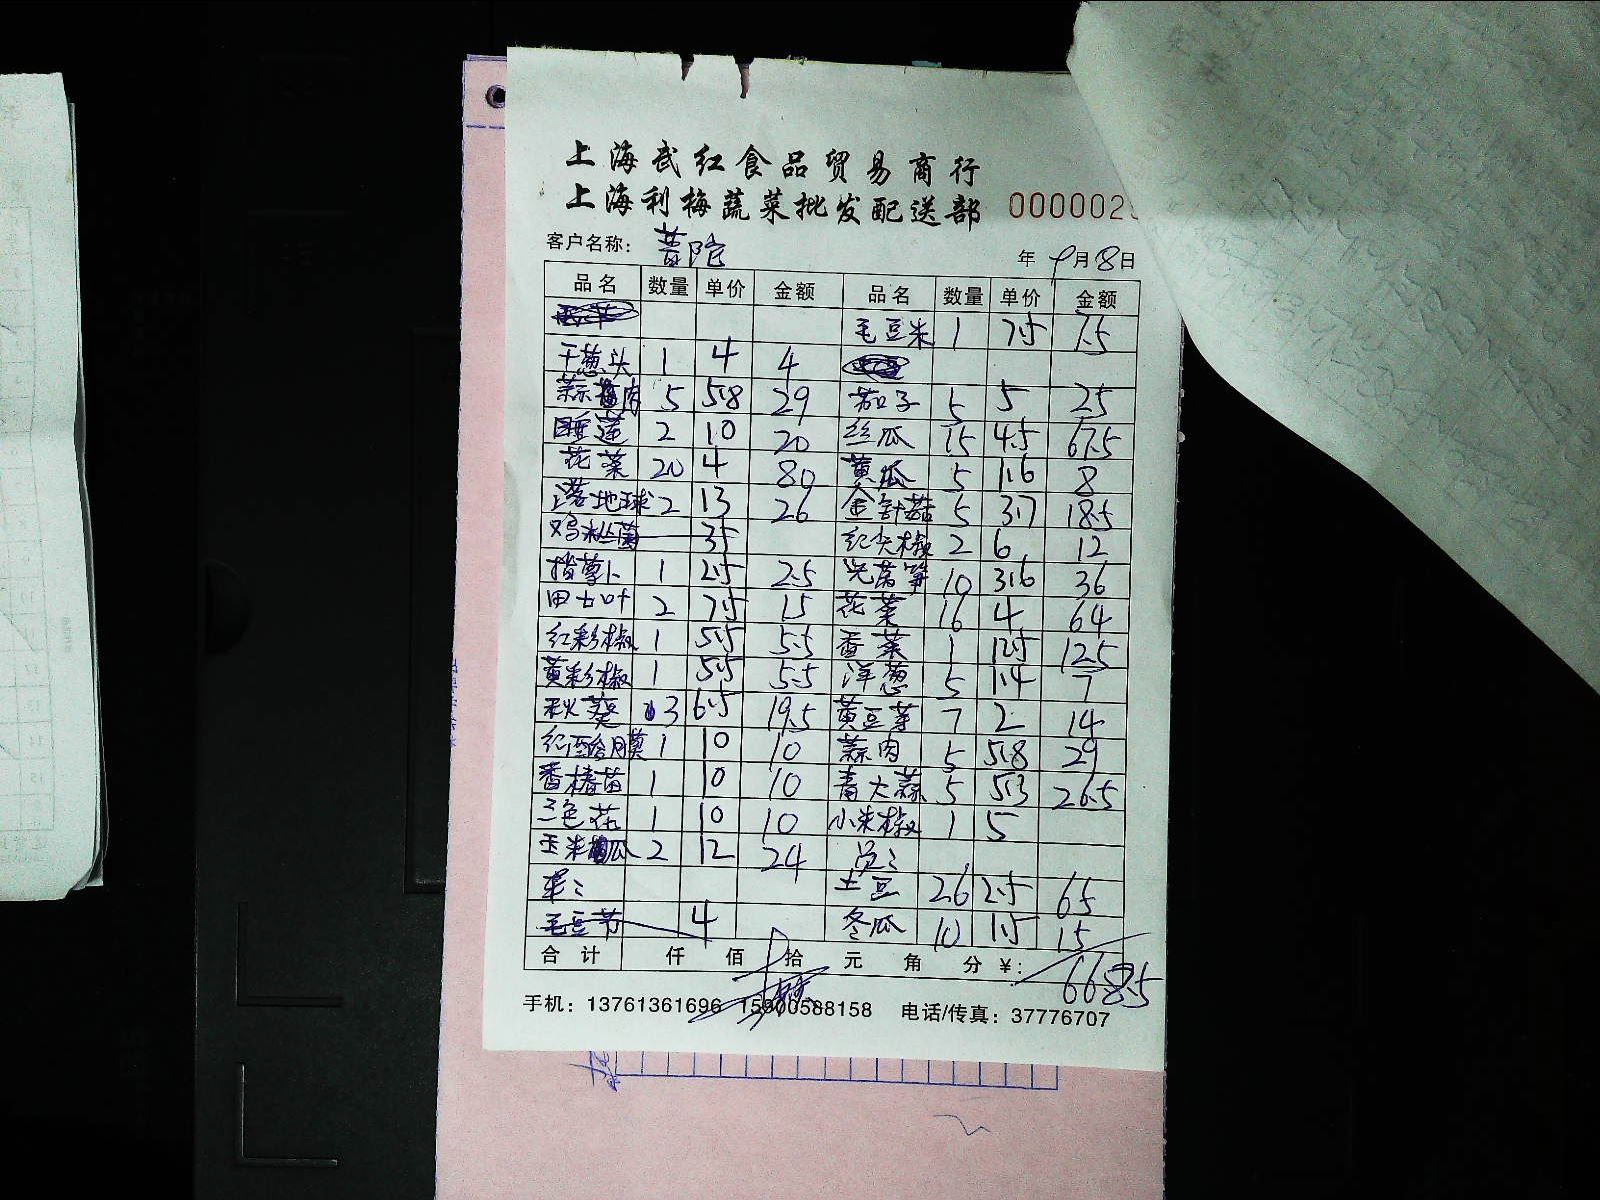 上海武红食品贸易商行
上海利梅蔬菜批发配送部 000002
客户名称： 普陀 年 9月18日
品名 数量 单价 金额 品名 数量 单价 金额
毛豆米 1 7.5 7.5
干葱头 1 4 4
蒜肉 5 5.8 29 茄子 5 5 25
睡莲 2 10 20 丝瓜 15 4.5 67.5
花菜 20 4 80 黄瓜 5 1.6 8
落地球 2 13 26 金针菇 5 3.7 18.5
鸡枞菌 35 红尖椒 2 6 12
指萝卜 1 2.5 2.5 光莴笋 10 3.6 36
田七叶 2 7.5 15 花菜 16 4 64
红彩椒 1 5.5 5.5 香菜 1 12.5 12.5
黄彩椒 1 5.5 5.5 洋葱 5 1.4 7
秋葵 3 6.5 19.5 黄豆芽 7 2 14
红酷合膜 1 10 10 蒜肉 5 5.8 29
香椿苗 1 10 10 青大蒜 5 5.3 26.5
三色花 1 10 10 小米椒 1 5
玉米瓜 2 12 24
土豆 26 2.5 65
毛豆节 4 冬瓜 10 1.5 15
合计 仟 佰 拾 元 角 分 ￥： 668.5
手机：13761361696 15900588158 电话/传真：37776707